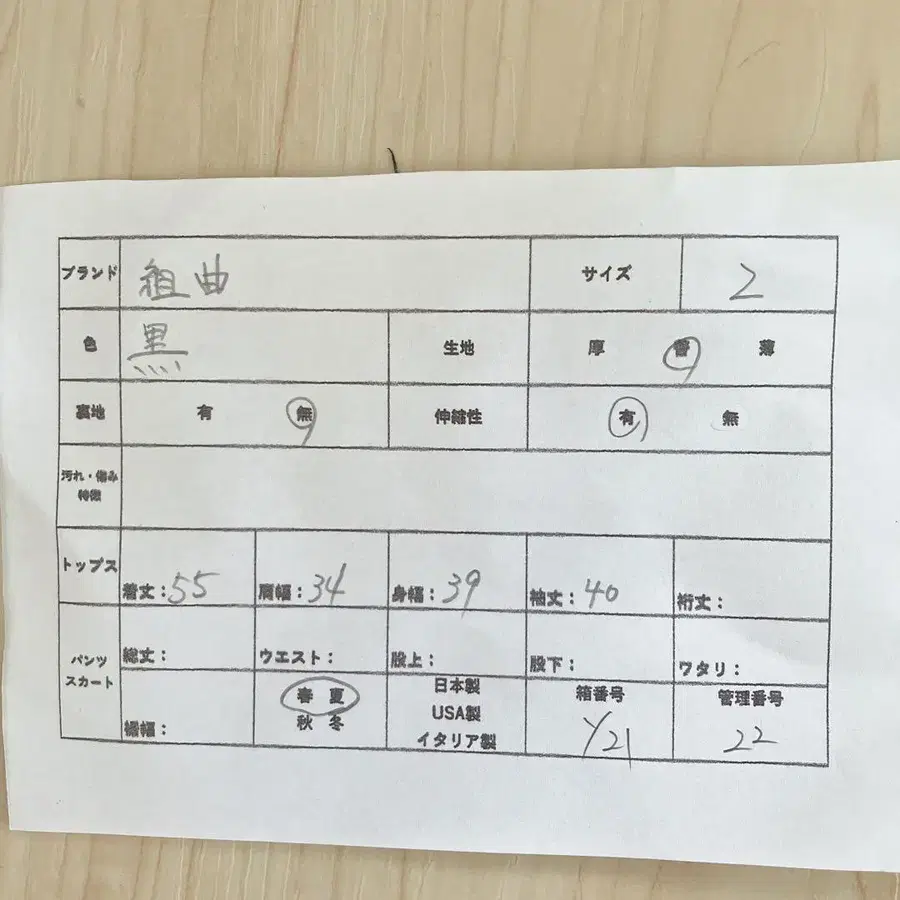 ブランド 組曲 サイズ 2
色 黒 生地 厚 普 薄
裏地 有 無 伸縮性 有 無
汚れ・傷み
特徴
トップス 着丈:55 肩幅:34 身幅:39 袖丈:40 裄丈:
パンツ
スカート
総丈: ウエスト: 股上: 股下: ワタリ:
裾幅:
春 夏
秋 冬
日本製
USA製
イタリア製
箱番号
Y21
管理番号
22